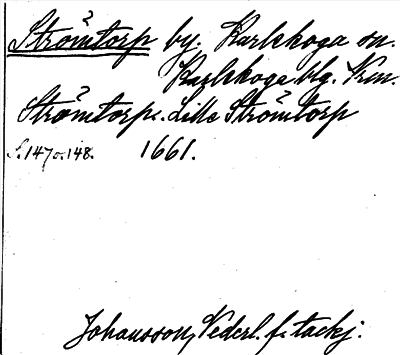 Strömtorp by. Karlskoga sn.
Karlskoga blg. Vrm.
Strömtorp. Lille Strömtorp
S. 147 o. 148. 1661.
Johansson, Nederl. f. tackj.